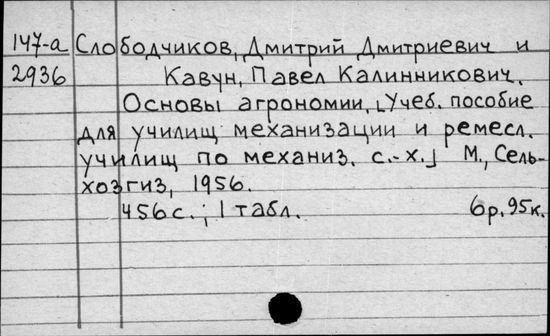 147-а Слободчиков, Дмитрий Дмитриевич и
2936 Кавун, Павел Калинникович.
Основы агрономии, [Учеб. пособие
для училищ механизации и ремесл.
училищ по механиз. с.-х.] М., Сель-
хозгиз, 1956.
456 с.; 1 табл. 6р. 95к.